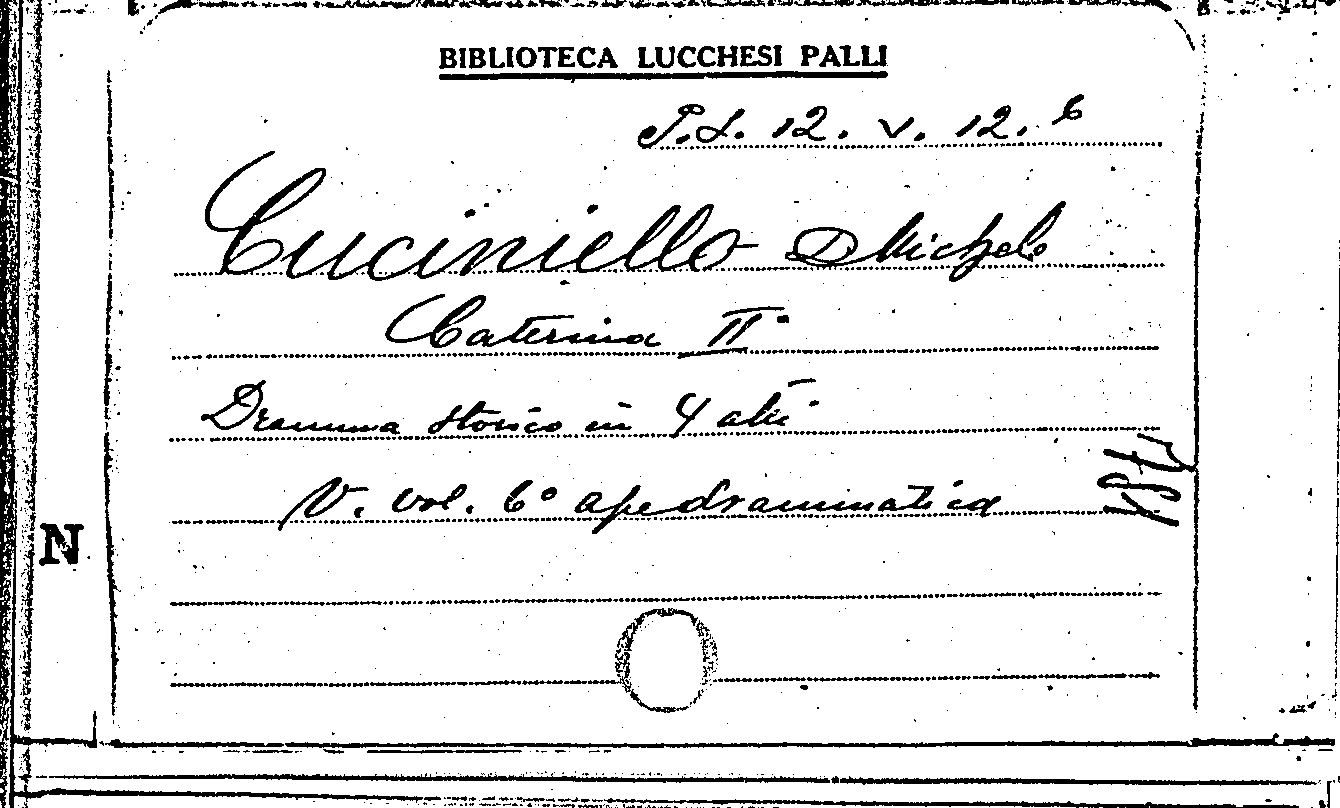 BIBLIOTECA LUCCHESI PALLI
P.S. 12. V. 12. 6
Cuciniello D Michele
Caterina II°
Dramma storico in 4 atti
V. vol. 6° ape drammatica
N